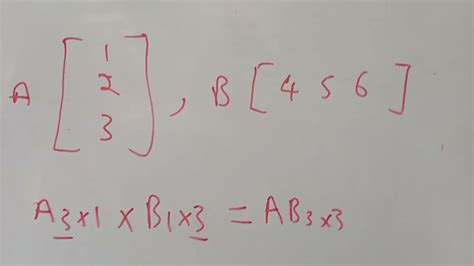 A [ 1 2 3 ] , B [ 4 5 6 ]
A3×1 × B1×3 = AB3×3